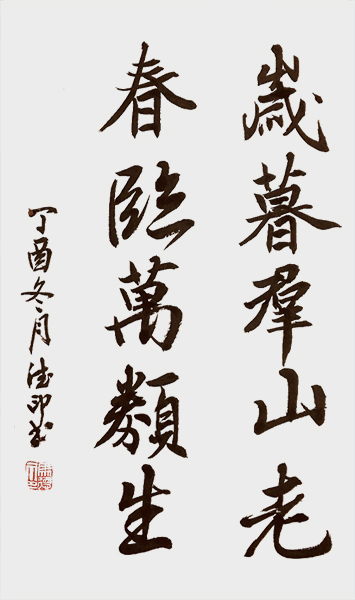 歲暮羣山老
春臨萬類生
丁酉冬月德印书